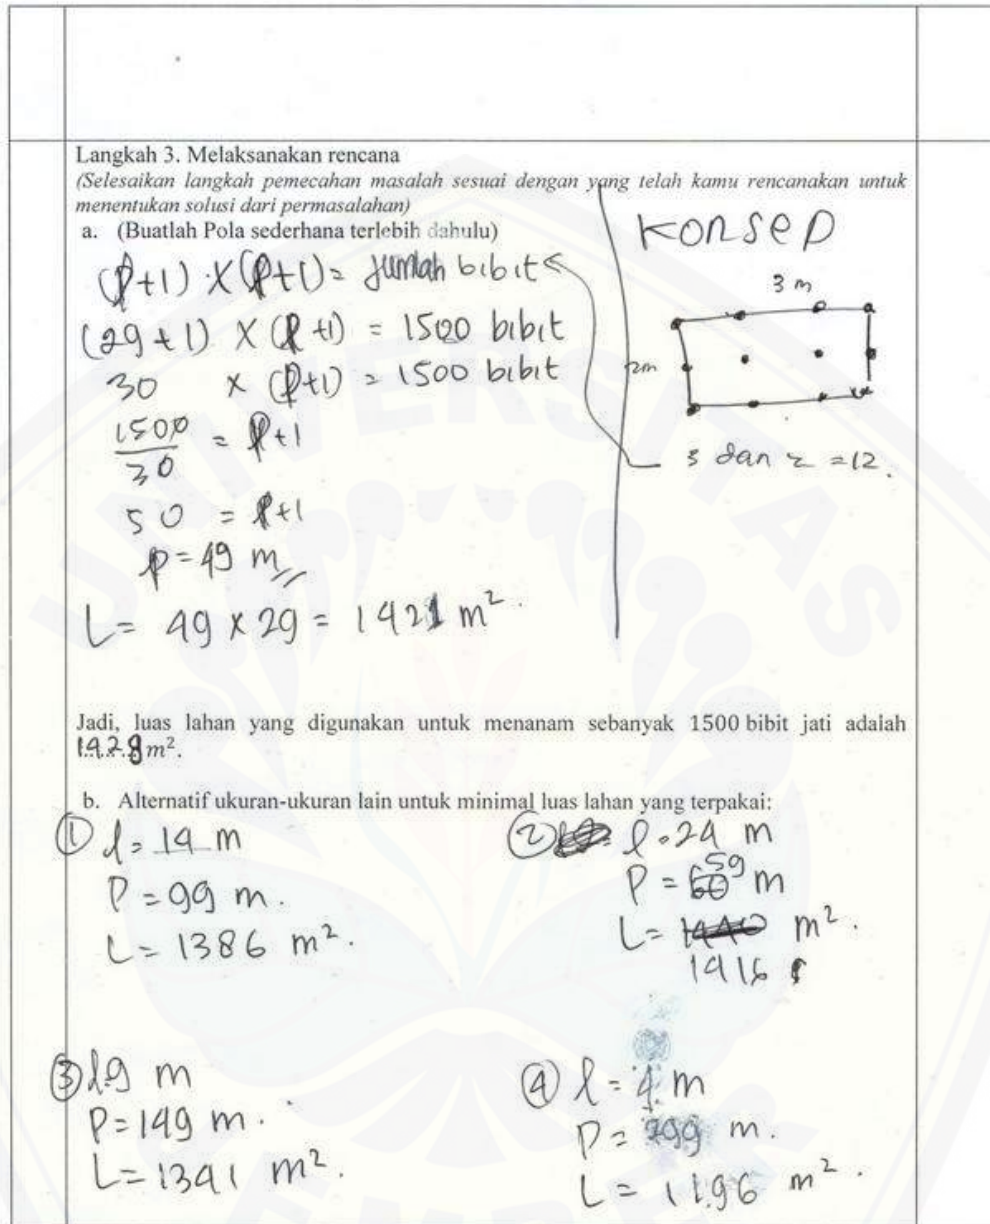 Langkah 3. Melaksanakan rencana
(Selesaikan langkah pemecahan masalah sesuai dengan yang telah kamu rencanakan untuk
menentukan solusi dari permasalahan)
a. (Buatlah Pola sederhana terlebih dahulu)
(l+1) × (p+1) = jumlah bibit
(29+1) × (p+1) = 1500 bibit
30 × (p+1) = 1500 bibit
1500/30 = p+1
50 = p+1
p = 49 m
L = 49 × 29 = 1421 m².
Konsep
3 m
2m
3 dan 2 = 12.
Jadi, luas lahan yang digunakan untuk menanam sebanyak 1500 bibit jati adalah
m².
b. Alternatif ukuran-ukuran lain untuk minimal luas lahan yang terpakai:
① l = 14 m
P = 99 m.
L = 1386 m².
② l = 24 m
P = 59 m
L = 1416 m².
③ l 9 m
P = 149 m.
L = 1341 m².
④ l = 4 m
P = 299 m.
L = 1196 m².
UNIVERSITAS